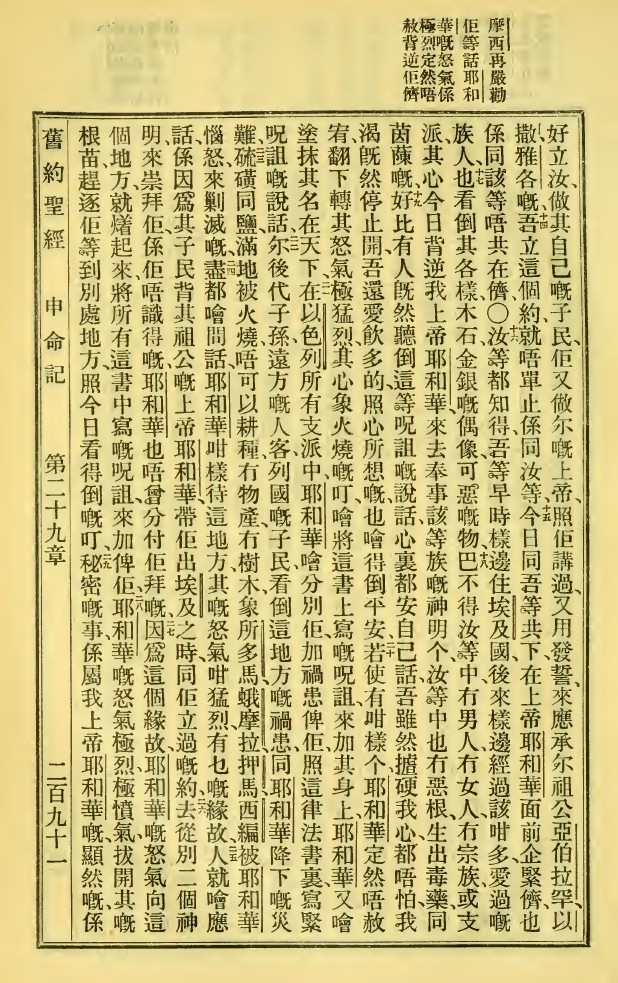 摩西再嚴勸
佢等話耶和
華嘅怒氣係
極烈定然唔
赦背逆佢儕
好立汝做其自己嘅子民佢又做尔嘅上帝照佢講過又用發誓來應承尔祖公亞伯拉罕以
撒雅各嘅十四吾立這個約就唔單止係同汝等十五今日同吾等共下在上帝耶和華面前企緊儕也
係同該等唔共在儕〇十六汝等都知得吾等早時樣邊住埃及國後來樣邊經過該咁多愛過嘅
族人十七也看倒其各樣木石金銀嘅偶像可惡嘅物十八巴不得汝等中冇男人冇女人冇宗族或支
派其心今日背逆我上帝耶和華來去奉事該等族嘅神明个汝等中也冇惡根生出毒藥同
茵蔯嘅十九好比有人既然聽倒這等呪詛嘅說話心裏都安自己話吾雖然揸硬我心都唔怕我
渴旣然停止開吾還愛飲多的照心所想嘅也會得倒平安二十若使有咁樣个耶和華定然唔赦
宥翻下轉其怒氣極猛烈其心象火燒嘅叮噲將這書上寫嘅呪詛來加其身上耶和華又噲
塗抹其名在天下二一在以色列所有支派中耶和華噲分別佢加禍患俾佢照這律法書裏寫緊
呪詛嘅說話二二尔後代子孫遠方嘅人客列國嘅子民看倒這地方嘅禍患同耶和華降下嘅災
難二三硫磺同鹽滿地被火燒唔可以耕種冇物產冇樹木象所多馬蛾摩拉押馬西編被耶和華
惱怒來剿滅嘅二四盡都噲問話耶和華咁樣待這地方其嘅怒氣咁猛烈有乜嘅緣故二五人就噲應
話係因爲其子民背其祖公嘅上帝耶和華帶佢出埃及之時同佢立過嘅約二六去從別二個神
明來崇拜佢係佢唔識得嘅耶和華也唔曾分付佢拜嘅二七因爲這個緣故耶和華嘅怒氣向這
個地方就㸐起來將所有這書中寫嘅呪詛來加俾佢二八耶和華嘅怒氣極烈極憤氣拔開其嘅
根苗趕逐佢等到別處地方照今日看得倒嘅叮二九秘密嘅事係屬我上帝耶和華嘅顯然嘅係
舊約聖經 申命記 第二十九章 二百九十一